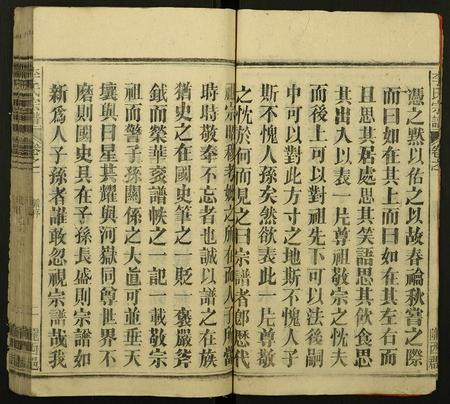 憑之默以佑之以故春禴秋嘗之際
而曰如在其上而曰如在其左右而
且思其居處思其笑語思其飲食思
其出入以表一片尊祖敬宗之忱夫
而後上可以對祖先下可以法後嗣
中可以對此方寸之地斯不愧人子
斯不愧人孫矣然欲表此一片尊敬
之忱於何而見之曰宗譜者即歷代
祖宗昭穆考妣之所在而人子所當
時時敬奉不忘者也誠以譜之在族
猶史之在國史筆之一貶一褒嚴斧
鉞而榮華袞譜帙之一記一載敬宗
祖而警子孫關係之大眞可並垂天
壤與日星共耀與河嶽同尊世界不
磨則國史具在子孫長盛則宗譜如
新為人子孫者誰敢忽視宗譜哉我
李氏宗譜
隴西郡